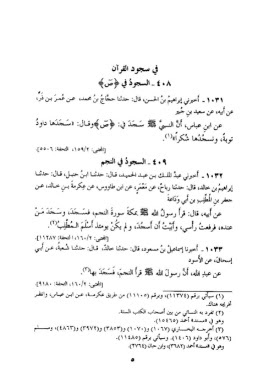 في سجود القرآن
٤٠٨ - السجود في ﴿صٓ﴾
١٠٣١ - أخبرني إبراهيم بن الحسن، قال: حدثنا حجّاج بن محمد، عن عمر بن ذر،
عن أبيه، عن سعيد بن جُبير
عن ابن عباس، أن النبيَّ ﷺ سَجَدَ في: ﴿صٓ﴾ وقال: «سَجَدَها داودُ
توبةً، ونَسجُدُها شكراً»(١).
[المجتبى: ١٥٩/٢، التحفة: ٥٥٠٦].
٤٠٩ - السجود في النجم
١٠٣٢ - أخبرنا عبد الملك بن عبد الحميد، قال: حدثنا ابن حنبل، قال: حدثنا
إبراهيم بن خالد، قال: حدثنا رباح، عن مَعْمَر، عن ابن طاوس، عن عكرمة بن خالد، عن
جعفر بن المُطَّلِب بن أبي وَدَاعَة
عن أبيه، قال: قرأ رسولُ الله ﷺ بمكةَ سورةَ النجم، فسَجَدَ، وسَجَدَ مَنْ
عنده، فرفعتُ رأسي، وأَبَيْتُ أن أسجُدَ، ولم يكن يومئذٍ أسلَمَ المُطَّلِبُ(٢).
[المجتبى: ١٦٠/٢، التحفة: ١١٢٨٧].
١٠٣٣ - أخبرنا إسماعيل بن مسعود، قال: حدثنا خالد، قال: حدثنا شعبة، عن أبي
إسحاق، عن الأسود
عن عبد الله، أن رسول الله ﷺ قرأ النجمَ، فسَجَدَ بها(٣).
[المجتبى: ١٦٠/٢، التحفة: ٩١٨٠].
(١) سيأتي برقم (١١٣٧٤)، وبرقم (١١١٠٥) من طريق عكرمة، عن ابن عباس، وانظر
تخريجه هناك.
(٢) تفرد به النسائي من بين أصحاب الكتب الستة.
وهو في «مسند» أحمد (١٥٤٦٥).
(٣) أخرجه البخاري (١٠٦٧) و(١٠٧٠) و(٣٨٥٣) و(٣٩٧٢) و(٤٨٦٣)، ومسلم
(٥٧٦)، وأبو داود (١٤٠٦). وسيأتي برقم (١١٤٨٥).
وهو في «مسند» أحمد (٣٦٨٢)، وابن حبان (٢٧٦٤).
٥